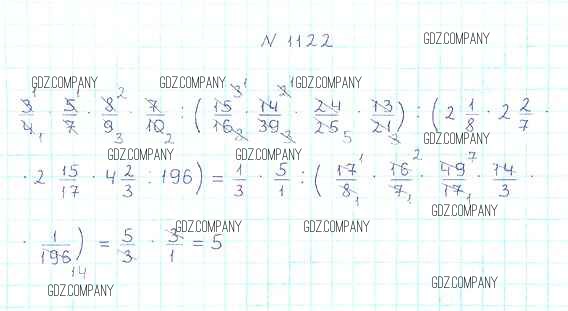 N 1122
GDZ.COMPANY
GDZ.COMPANY GDZ.COMPANY GDZ.COMPANY
3/4 · 5/7 · 8/9 · 7/10 : (15/16 · 14/39 · 24/25 · 13/21) : (2 1/8 · 2 2/7 ·
GDZ.COMPANY
GDZ.COMPANY GDZ.COMPANY
· 2 15/17 · 4 2/3 : 196) = 1/3 · 5/1 : (17/8 · 16/7 · 49/17 · 14/3 ·
GDZ.COMPANY
GDZ.COMPANY GDZ.COMPANY
· 1/196) = 5/3 · 3/1 = 5
GDZ.COMPANY GDZ.COMPANY